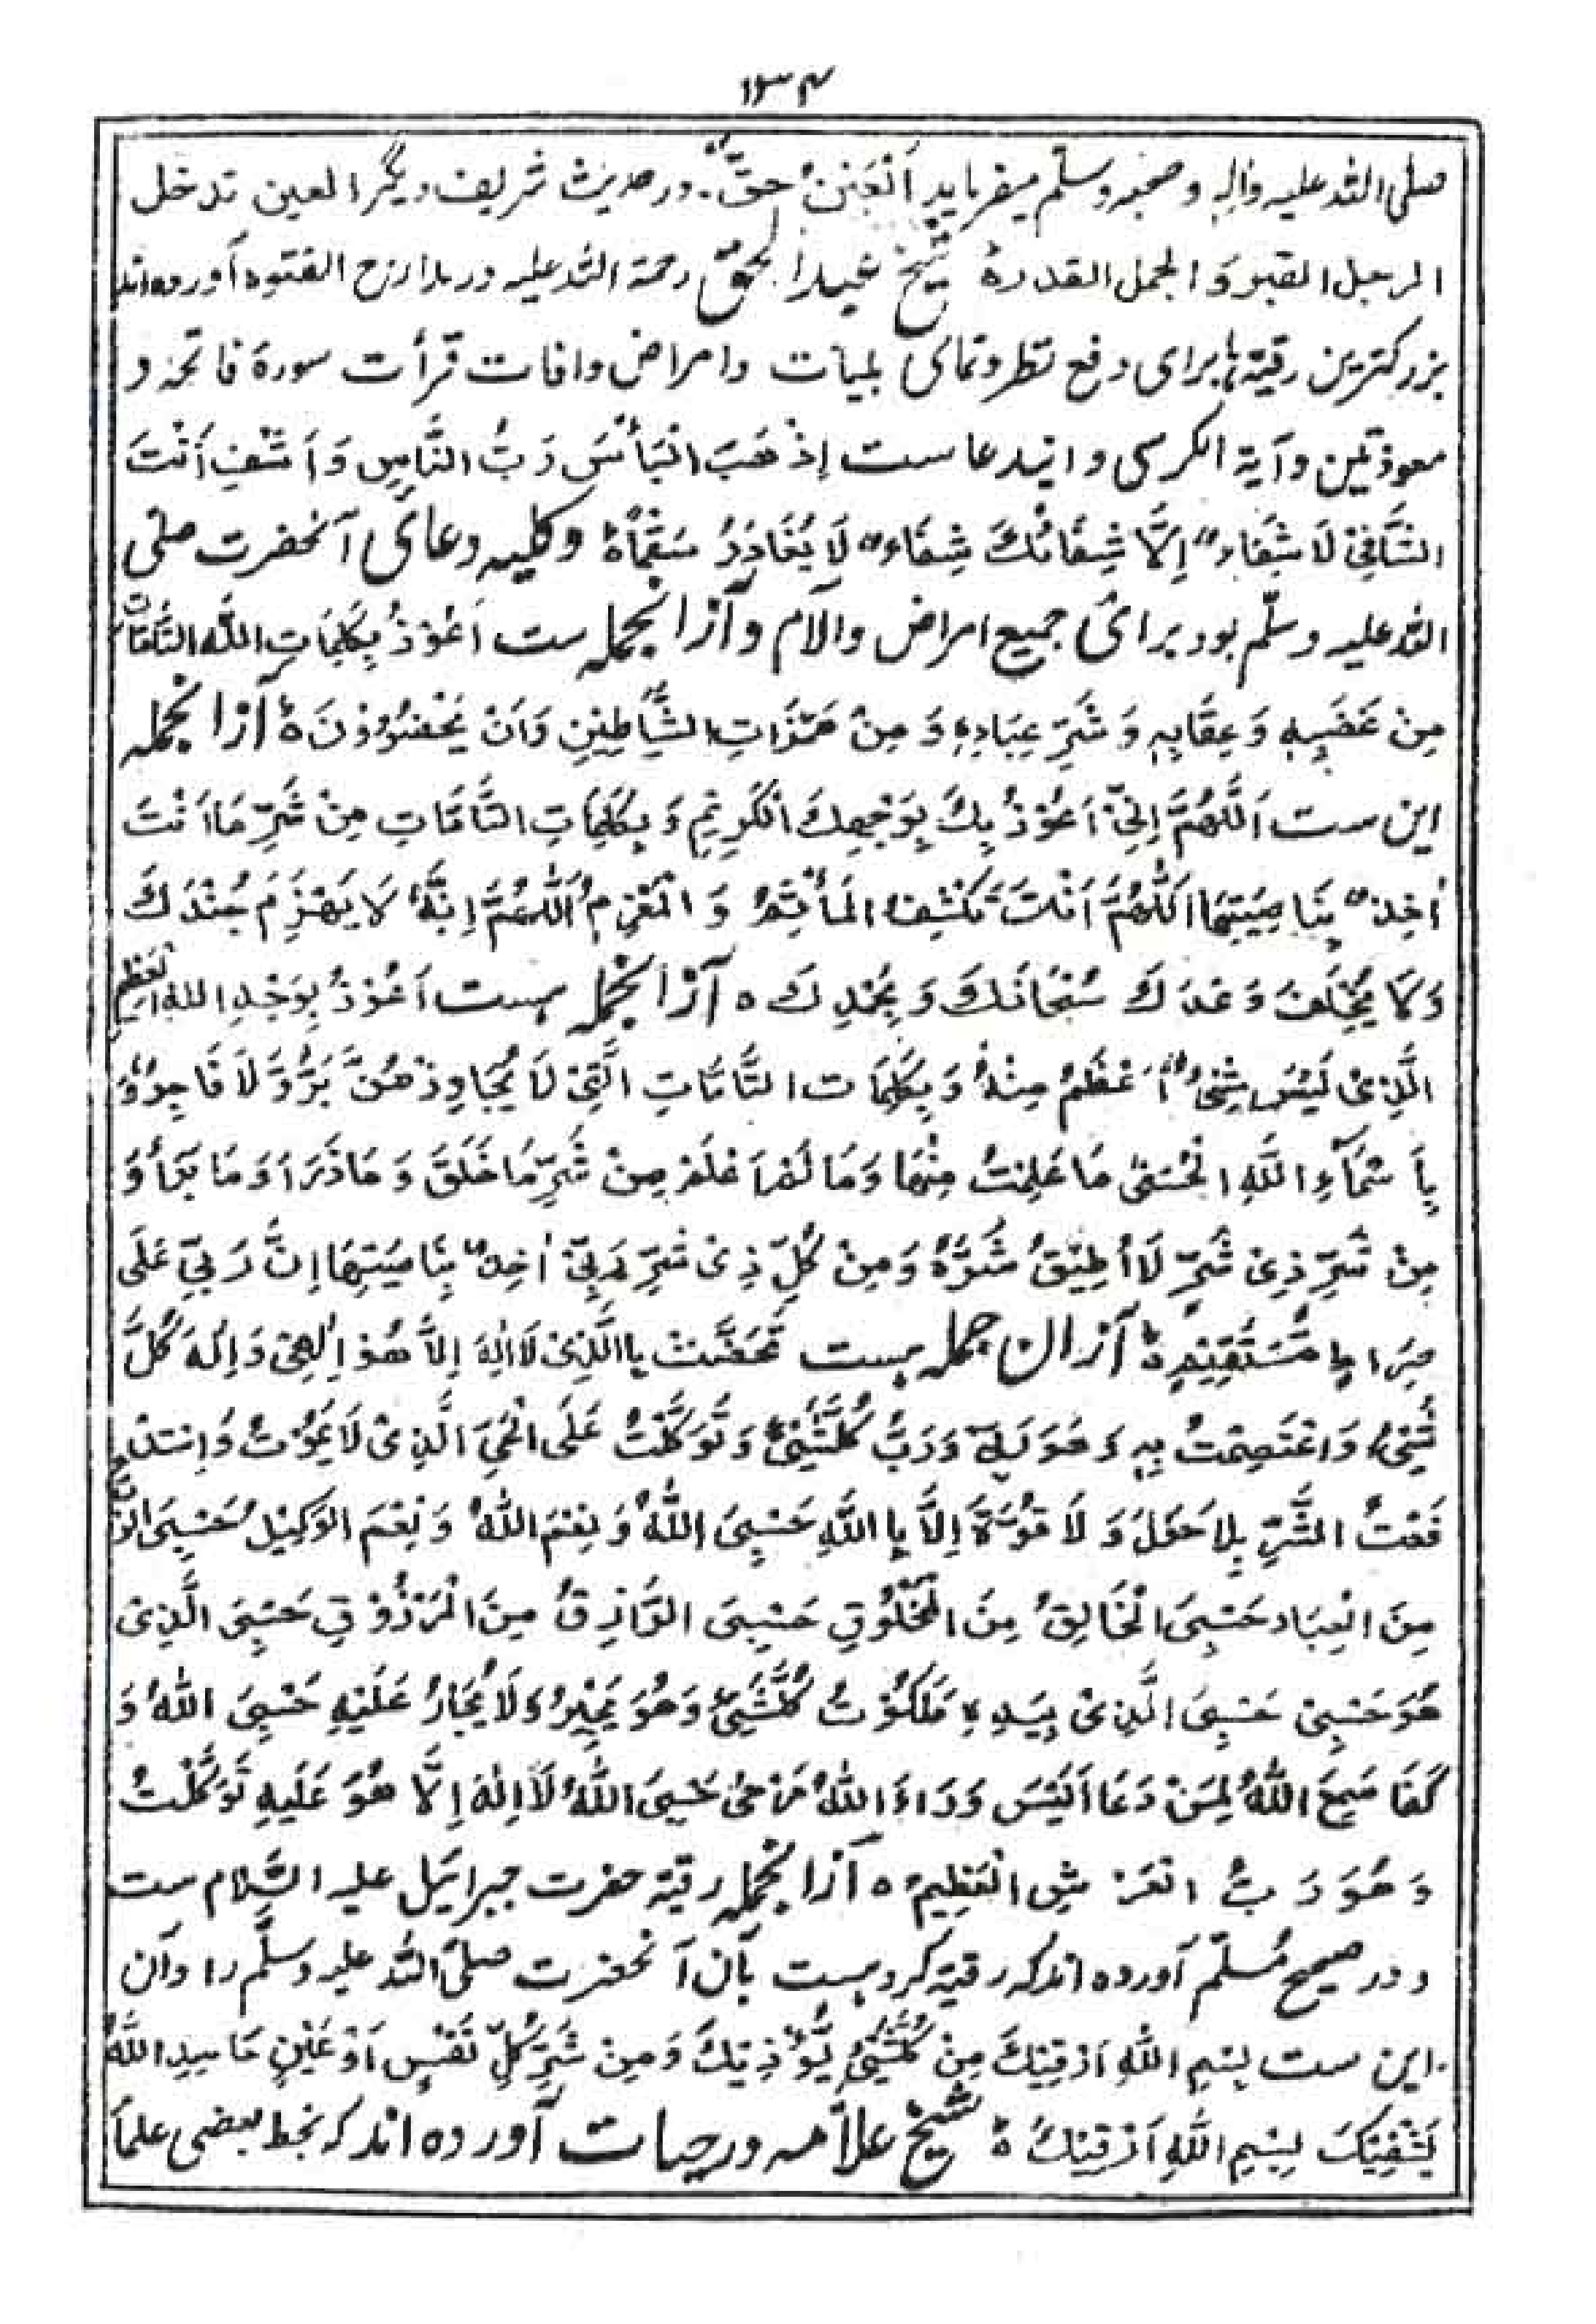 ۱۳۴
صلی الله علیه واله وصحبه وسلّم میفرماید اَلْعَیْنُ حقٌّ. ودر حدیث شریف دیگر العین تدخل
الرجل القبر وَ الجمل القدرهٔ شیخ عبدالحقّ رحمة الله علیه در مدارج الفتوه آورده‌اند
بزرگترین رقیّه‌ها برای دفع نظر وتمامی بلیات وامراض وافات قرأت سورة فاتحه و
معوذتین وآیة الکرسی و ایندعاست اِذْهَبَ الْبَأْسَ رَبَّ النَّاسِ وَاَشْفِ اَنْتَ
الشَّافِیْ لَا شِفَاءَ اِلَّا شِفَائُكَ شِفَاءً لَا یُغَادِرُ سَقَمًاهٔ وکلیه دعاى آنحضرت صلّی
الله علیه وسلّم بود براىٔ جمیع امراض والآم وآز انجمله ست اَعُوْذُ بِکَلِمَاتِ اللّٰه التَّامَّاتِ
مِنْ غَضَبِهِ وَعِقَابِهِ وَشَرِّ عِبَادِهِ وَمِنْ هَمَزَاتِ الشَّیَاطِیْنِ وَاَنْ یَحْضُرُوْنَ هٔ آز انجمله
این ست اَللّٰهُمَّ اِنِّیْ اَعُوْذُ بِكَ بِوَجْهِكَ الْکَرِیْمِ وَبِکَلِمَاتِ التَّامَّاتِ مِنْ شَرِّ مَا اَنْتَ
اٰخِذٌ بِنَاصِیَتِهَا اَللّٰهُمَّ اَنْتَ تَکْشِفُ الْمَأْثَمَ وَ الْمَغْرِمُ اَللّٰهُمَّ اِنَّهُ لَا یَهْزِمُ جُنْدَكَ
وَلَا یُخْلَفُ وَعْدَكَ سُبْحَانَكَ وَبِحَمْدِكَ ه آز انجمله ست اَعُوْذُ بِوَجْهِ اللهِ الْعَظِیْمِ
الَّذِیْ لَیْسَ شَیْءٌ اَعْظَمُ مِنْهُ وَبِکَلِمَات التَّامَّاتِ الَّتِیْ لَا یُجَاوِزُهُنَّ بَرٌّ وَّ لَا فَاجِرٌ وَ
بِاَسْمَاءِ اللّٰهِ الْحُسْنٰی مَا عَلِمْتُ مِنْهَا وَمَا لَمْ اَعْلَمْ مِنْ شَرِّ مَا خَلَقَ وَمَا ذَرَاَ وَمَا بَرَأَ وَ
مِنْ شَرِّ ذِیْ شَرٍّ لَا اُطِیْقُ شَرَّهُ وَمِنْ کُلِّ ذِیْ شَرٍّ رَبِّیْ اٰخِذٌ بِنَاصِیَتِهَا اِنَّ رَبِّیْ عَلَی
صِرَاطٍ مُّسْتَقِیْمٍ هٔ آز ان جمله ست تَحَصَّنْتُ بِاالَّذِیْ لَا اِلٰهَ اِلَّا هُوَ اِلٰهِیْ وَاِلٰهَ کُلِّ
شَیْءٍ وَاعْتَصِمْتُ بِهِ وَهُوَ رَبِّیْ وَرَبُّ کُلِّشَیْءٍ وَتَوَکَّلْتُ عَلَی الْحَیِّ الَّذِیْ لَا یَمُوْتُ وَاسْتَدْ
فَعْتُ الشَّرِّ بِلَا حَوْلَ وَ لَا قُوَّةَ اِلَّا بِا اللّٰهِ حَسْبِیَ اللّٰهُ وَنِعْمَ اللّٰهُ وَنِعْمَ الْوَکِیْلُ حَسْبِیَ الرَّبُّ
مِنَ الْعِبَادِ حَسْبِیَ الْخَالِقُ مِنَ الْمَخْلُوْقِ حَسْبِیَ الرَّازِقُ مِنَ الْمَرْزُوْقِ حَسْبِیَ الَّذِیْ
هُوَ حَسْبِیْ حَسْبِیَ الَّذِیْ بِیَدِهِ مَلَکُوْتُ کُلِّشَیْءٍ وَهُوَ یُجِیْرُ وَلَا یُجَارُ عَلَیْهِ حَسْبِیَ اللّٰهُ وَ
کَفَا سَمِعَ اللّٰهُ لِمَنْ دَعَا اَلَیْسَ وَرَاءَ اللّٰهُ مَرْمٰی حَسْبِیَ اللّٰهُ لَا اِلٰهَ اِلَّا هُوَ عَلَیْهِ تَوَکَّلْتُ
وَهُوَ رَبُّ الْعَرْشِ الْعَظِیْمُ ه آز انجمله رقیّه حضرت جبرائیل علیه السَّلام ست
ودر صحیح مُسلّم آورده اند که رقیّه کرد ست بآن آنحضرت صلیَّ الله علیه وسلَّم را وآن
این ست بِسْمِ اللّٰهِ اَرْقِیْكَ مِنْ کُلِّشَیْءٍ یُّؤْذِیْكَ وَمِنْ شَرِّ کُلِّ نَفْسٍ اَوْ عَیْنٍ حَاسِدِ اللّٰهُ
یَشْفِیْكَ بِسْمِ اللّٰهِ اَرْقِیْكَ هٔ شیخ علاّمه در حیات آورده اند که بخط بعضی علمآ